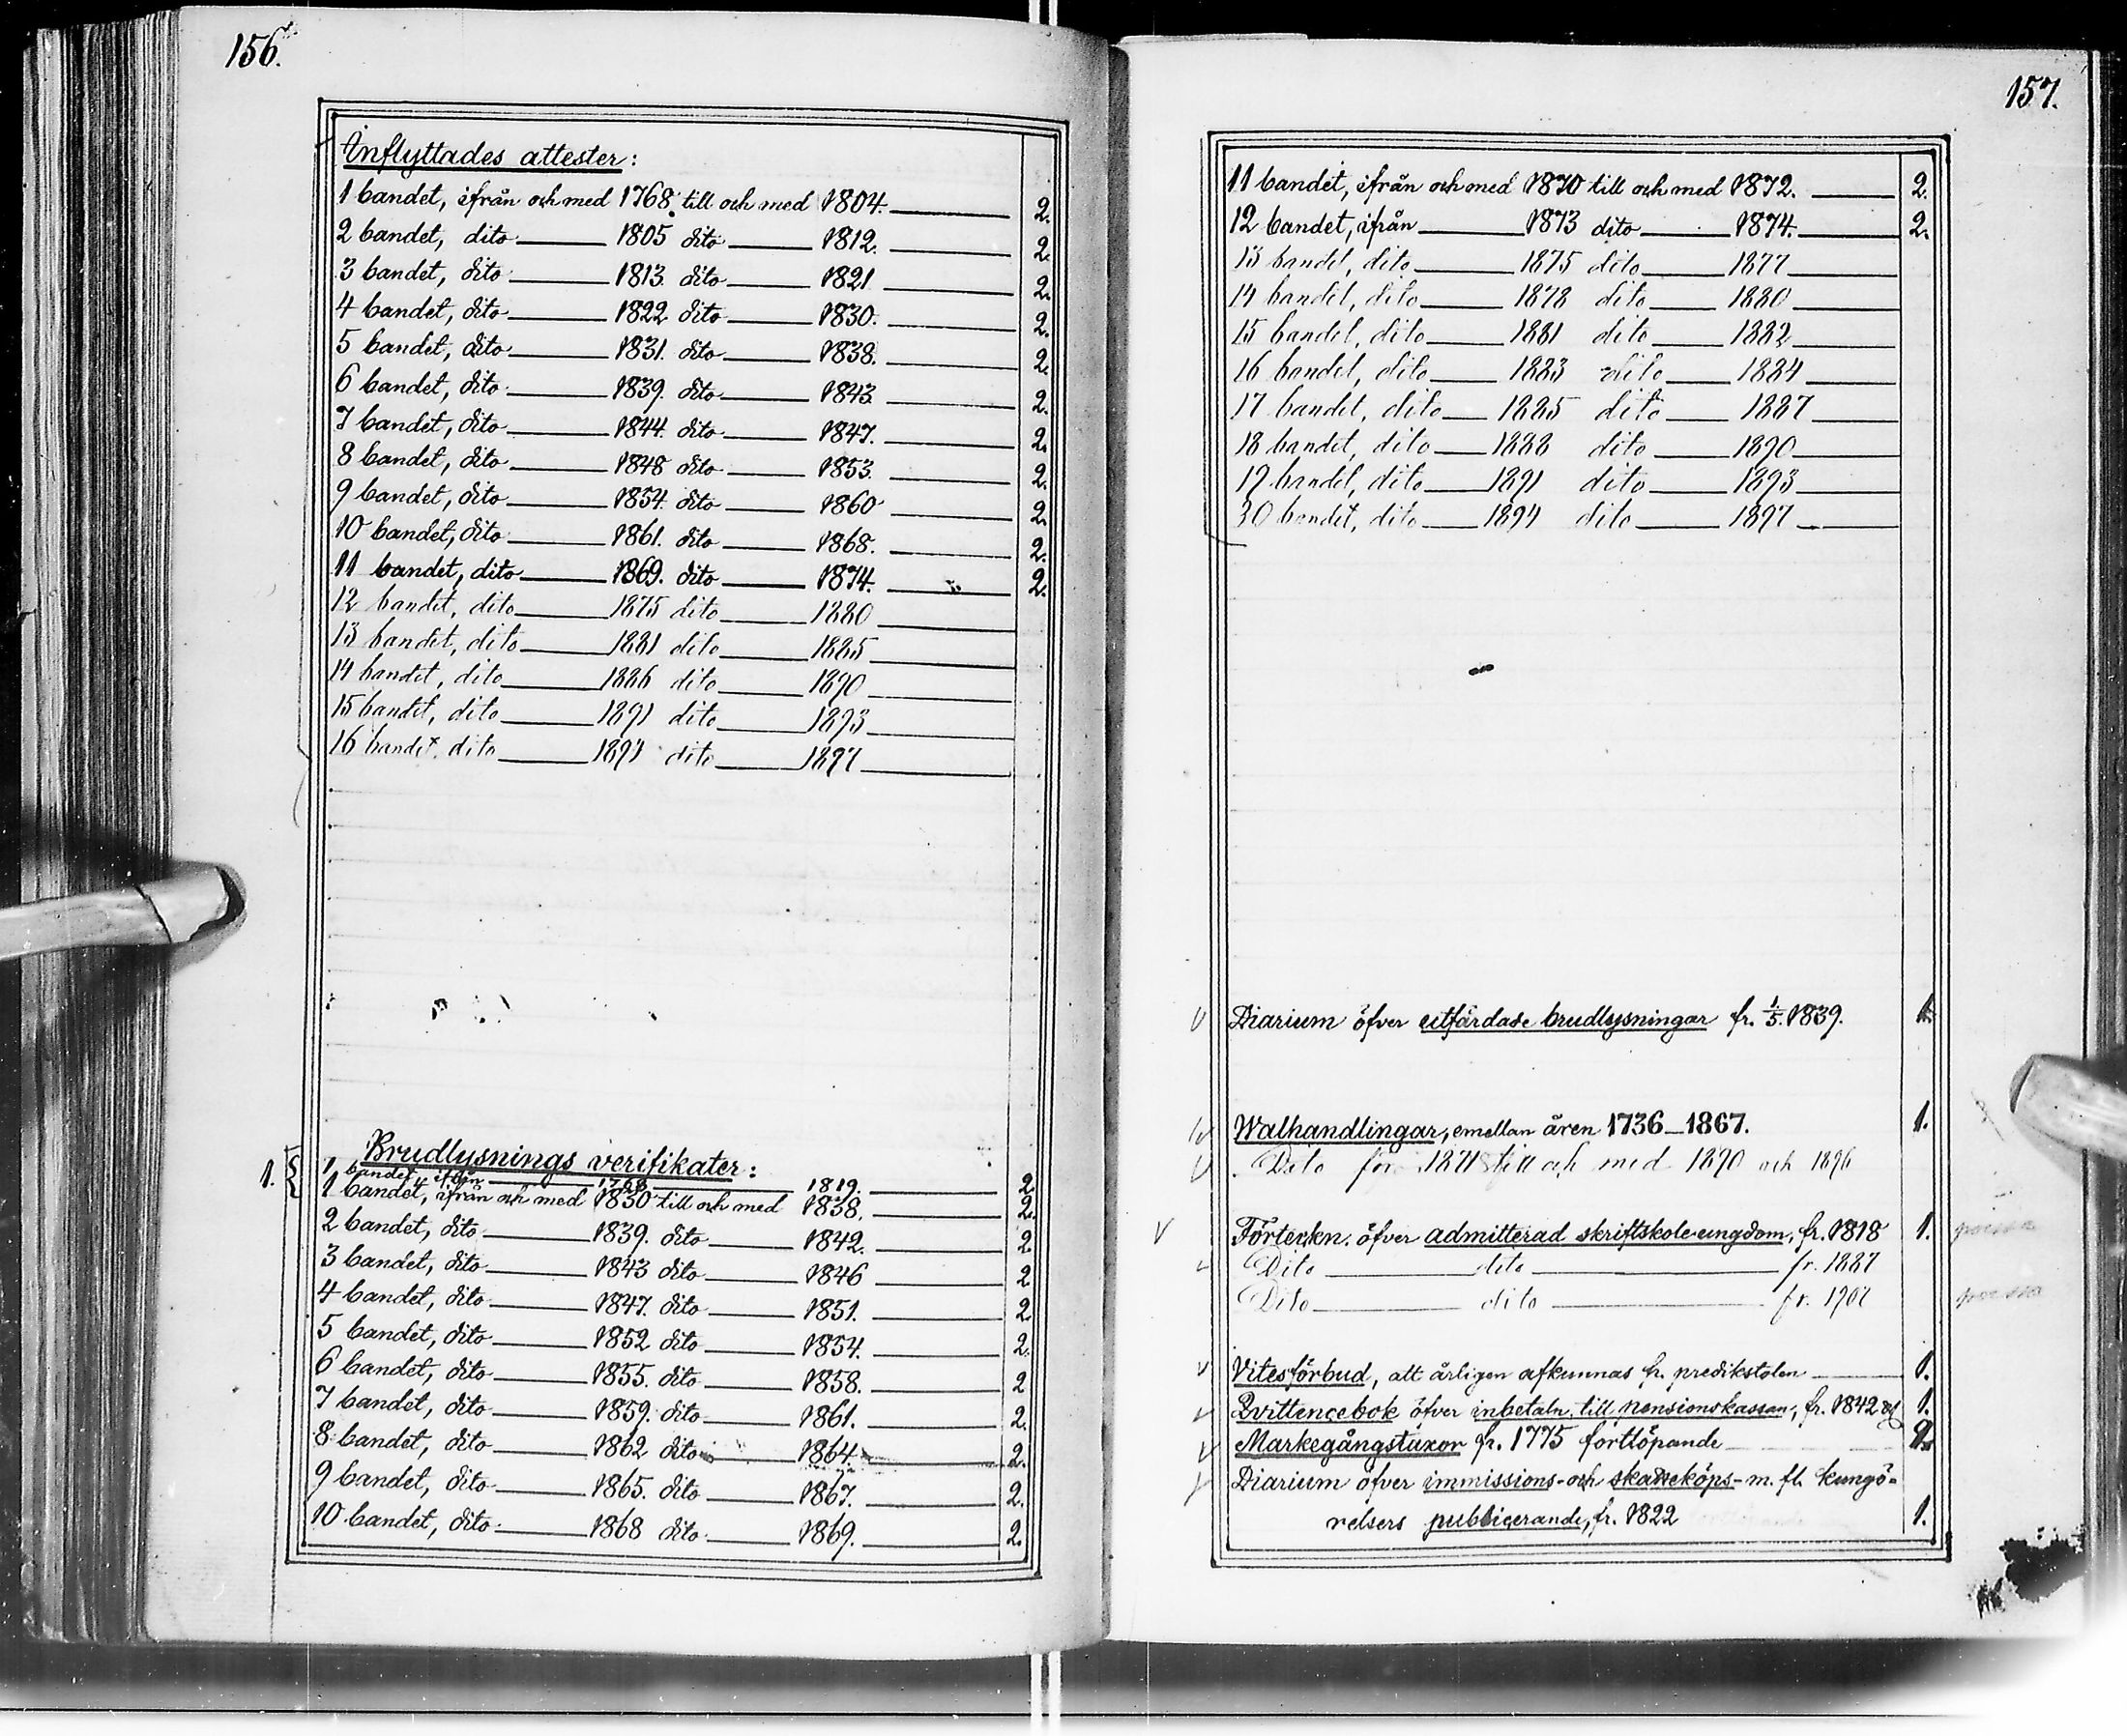 156.
Inflyttades attester:
1 bandet, ifrån och med 1768. till och med 1804. 2.
2 bandet, dito 1805 dito 1812. 2.
3 bandet, dito 1813. dito 1821 2.
4 bandet, dito 1822 dito 1830. 2.
5 bandet, dito 1831. dito 1838. 2.
6 bandet, dito 1839. dito 1843. 2.
7 bandet, dito 1844. dito 1847. 2.
8 bandet, dito 1848 dito 1853. 2.
9 bandet, dito 1854. dito 1860 2.
10 bandet, dito 1861. dito 1868. 2.
11 bandet, dito 1869. dito 1874. 2.
12 bandet, dito 1875 dito 1880
13 bandet, dito 1881 dito 1885
14 bandet, dito 1886 dito 1890
15 bandet, dito 1891 dito 1893
16 bandet, dito 1894 dito 1897
Brudlysnings verifikater:
1. 1 bandet, ifrån 1768 1819. 2
1 bandet, ifrån och med 1830 till och med 1838. 2.
2 bandet, dito 1839. dito 1842. 2
3 bandet, dito 1843 dito 1846 2
4 bandet, dito 1847. dito 1851. 2
5 bandet, dito 1852 dito 1854. 2.
6 bandet, dito 1855. dito 1858. 2
7 bandet, dito 1859. dito 1861. 2.
8 bandet, dito 1862 dito 1864. 2.
9 bandet, dito 1865. dito 1867. 2.
10 bandet, dito 1868 dito 1869. 2.
157.
11 bandet, ifrån och med 1870 till och med 1872. 2.
12 bandet, ifrån 1873 dito 1874. 2.
13 bandet, dito 1875 dito 1877
14 bandet, dito 1878 dito 1880
15 bandet, dito 1881 dito 1882
16 bandet, dito 1883 dito 1884
17 bandet, dito 1885 dito 1887
18 bandet, dito 1888 dito 1890
19 bandet, dito 1891 dito 1893
30 bandet, dito 1894 dito 1897
Diarium öfver utfärdade brudlysningar fr. 1/5. 1839. 1.
Walhandlingar, emellan åren 1736–1867. 1.
Dito för 1871 till och med 1890 och 1896
Förteckn. öfver admitterad skriftskole-ungdom, fr. 1818 1.
Dito dito fr. 1887
Dito dito fr. 1907
Vitesförbud, att årligen afkunnas fr. predikstolen 1.
Qvittencebok öfver inbetaln. till pensionskassan, fr. 1842 1.
Markegångstaxor fr. 1775 fortlöpande
Diarium öfver immissions- och skatteköps- m. fl. kungö-
relsers publicerande, fr. 1822 1.